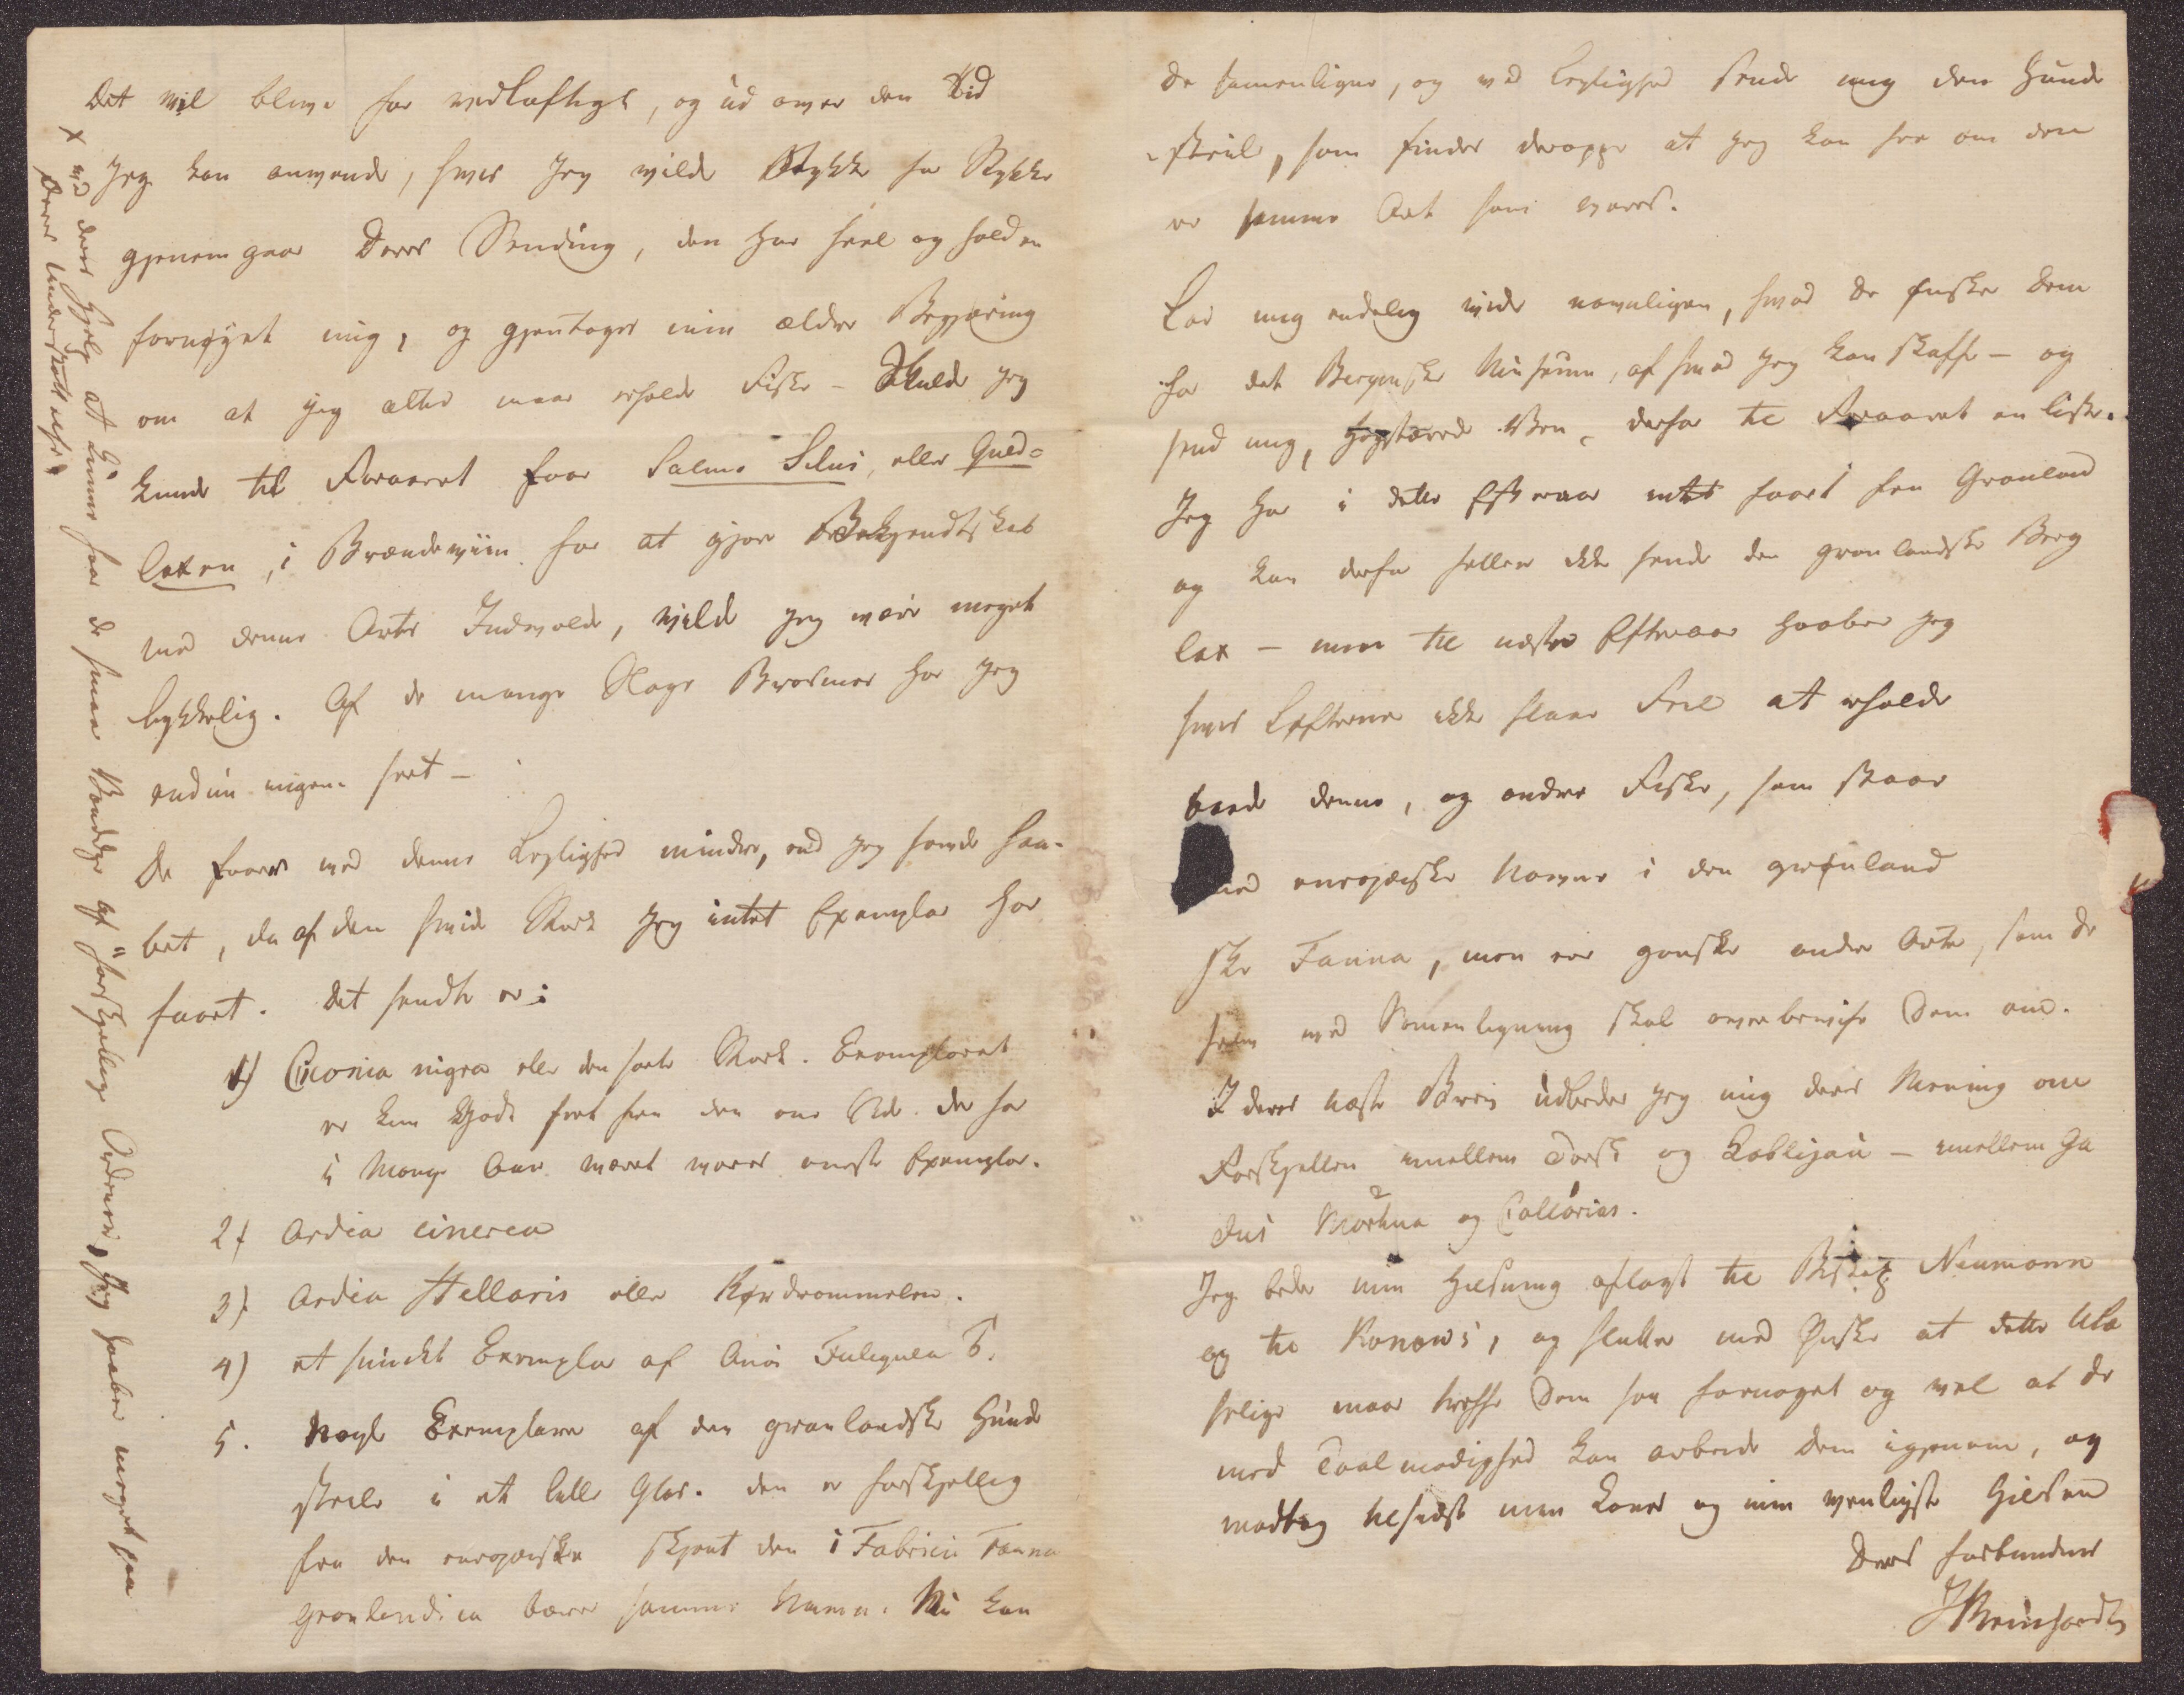 Det vil blive for vidtløftigt, og ud over den Tid
Jeg kan anvende, hvis Jeg vilde Stykke for Stykke
gjennemgaae Deres Sending, den har heel og holden
fornøyet mig, og gjentager min ældre Begjæring
om at jeg altid maae erholde Fiske – Skulde jeg
kunde til Foraaret faae Salmo Silus, eller Guld-
laxen, i Brændeviin for at gjøre Bekjendtskab
med denne Arts Indvolde, vilde jeg være meget
lykkelig. Af de mange Slags Brosmer har jeg
endnu ingen seet –
De faaer ved denne Leylighed mindre, end jeg havde haa-
bet, da af den hvide Stork Jeg intet Exemplar har
faaet. Det sendte er:
1) Ciconia nigra eller den sorte Stork. Exemplaret
er kun
i Mange Aar været vores eneste Exemplar.
2) Ardea cinerea
3) Ardea Stellaris eller Rørdrommelen.
4) et smukt Exemplar af Anas Fuligula
5. Nogle Exemplarer af den grønlandske Hunde
steile i et lille Glas. den er forskjellig
fra den europæiske skjønt den i Fabricii Fauna
grønlandica bærer samme Navn. Nu kan
x ved deres Hjelp at kunne faae de smaa af forskjellige Jeg haaber meget paa
Deres Understøttelse
De sammenligne, og ved Leylighed sende mig den Hunde
steile, som findes deroppe at jeg kan see om den
er samme Art som vores.
Lad mig endelig vide navnligen, hvad De ønsker Dem
for det Bergenske Museum, af hvad jeg kan skaffe – og
send mig, høystærede Ven, derfor til Foraaret en Liste.
Jeg har i dette Efteraar intet faaet fra Grønland
og kan derfor heller ikke sende den grønlandske Berg
lax – men til næste Efteraar haaber jeg
hvis Løfterne ikke slaae Feil at erholde
baade denne, og andre Fiske, som staae
med europæiske Navne i den grønland
ske Fauna, men ere ganske andre Arter, som De
selv ved Sammenligning skal overbevise Dem om.
I deres næste Brev udbeder jeg mig deres Mening om
Forskjellen imellem Torsk og Kabliau – imellem Ga
dus Morhua og Callarias.
Jeg beder min Hilsning aflagt til Biskop Neumann
og til Konows, og slutter med Ønske at dette
maae træffe Dem saa fornøyet og vel at De
med Taalmodighed kan arbeide Dem igjennem, og
modtag tilsidst min Kones og min venligste Hilsen
Deres forbundne
J Reinhardt